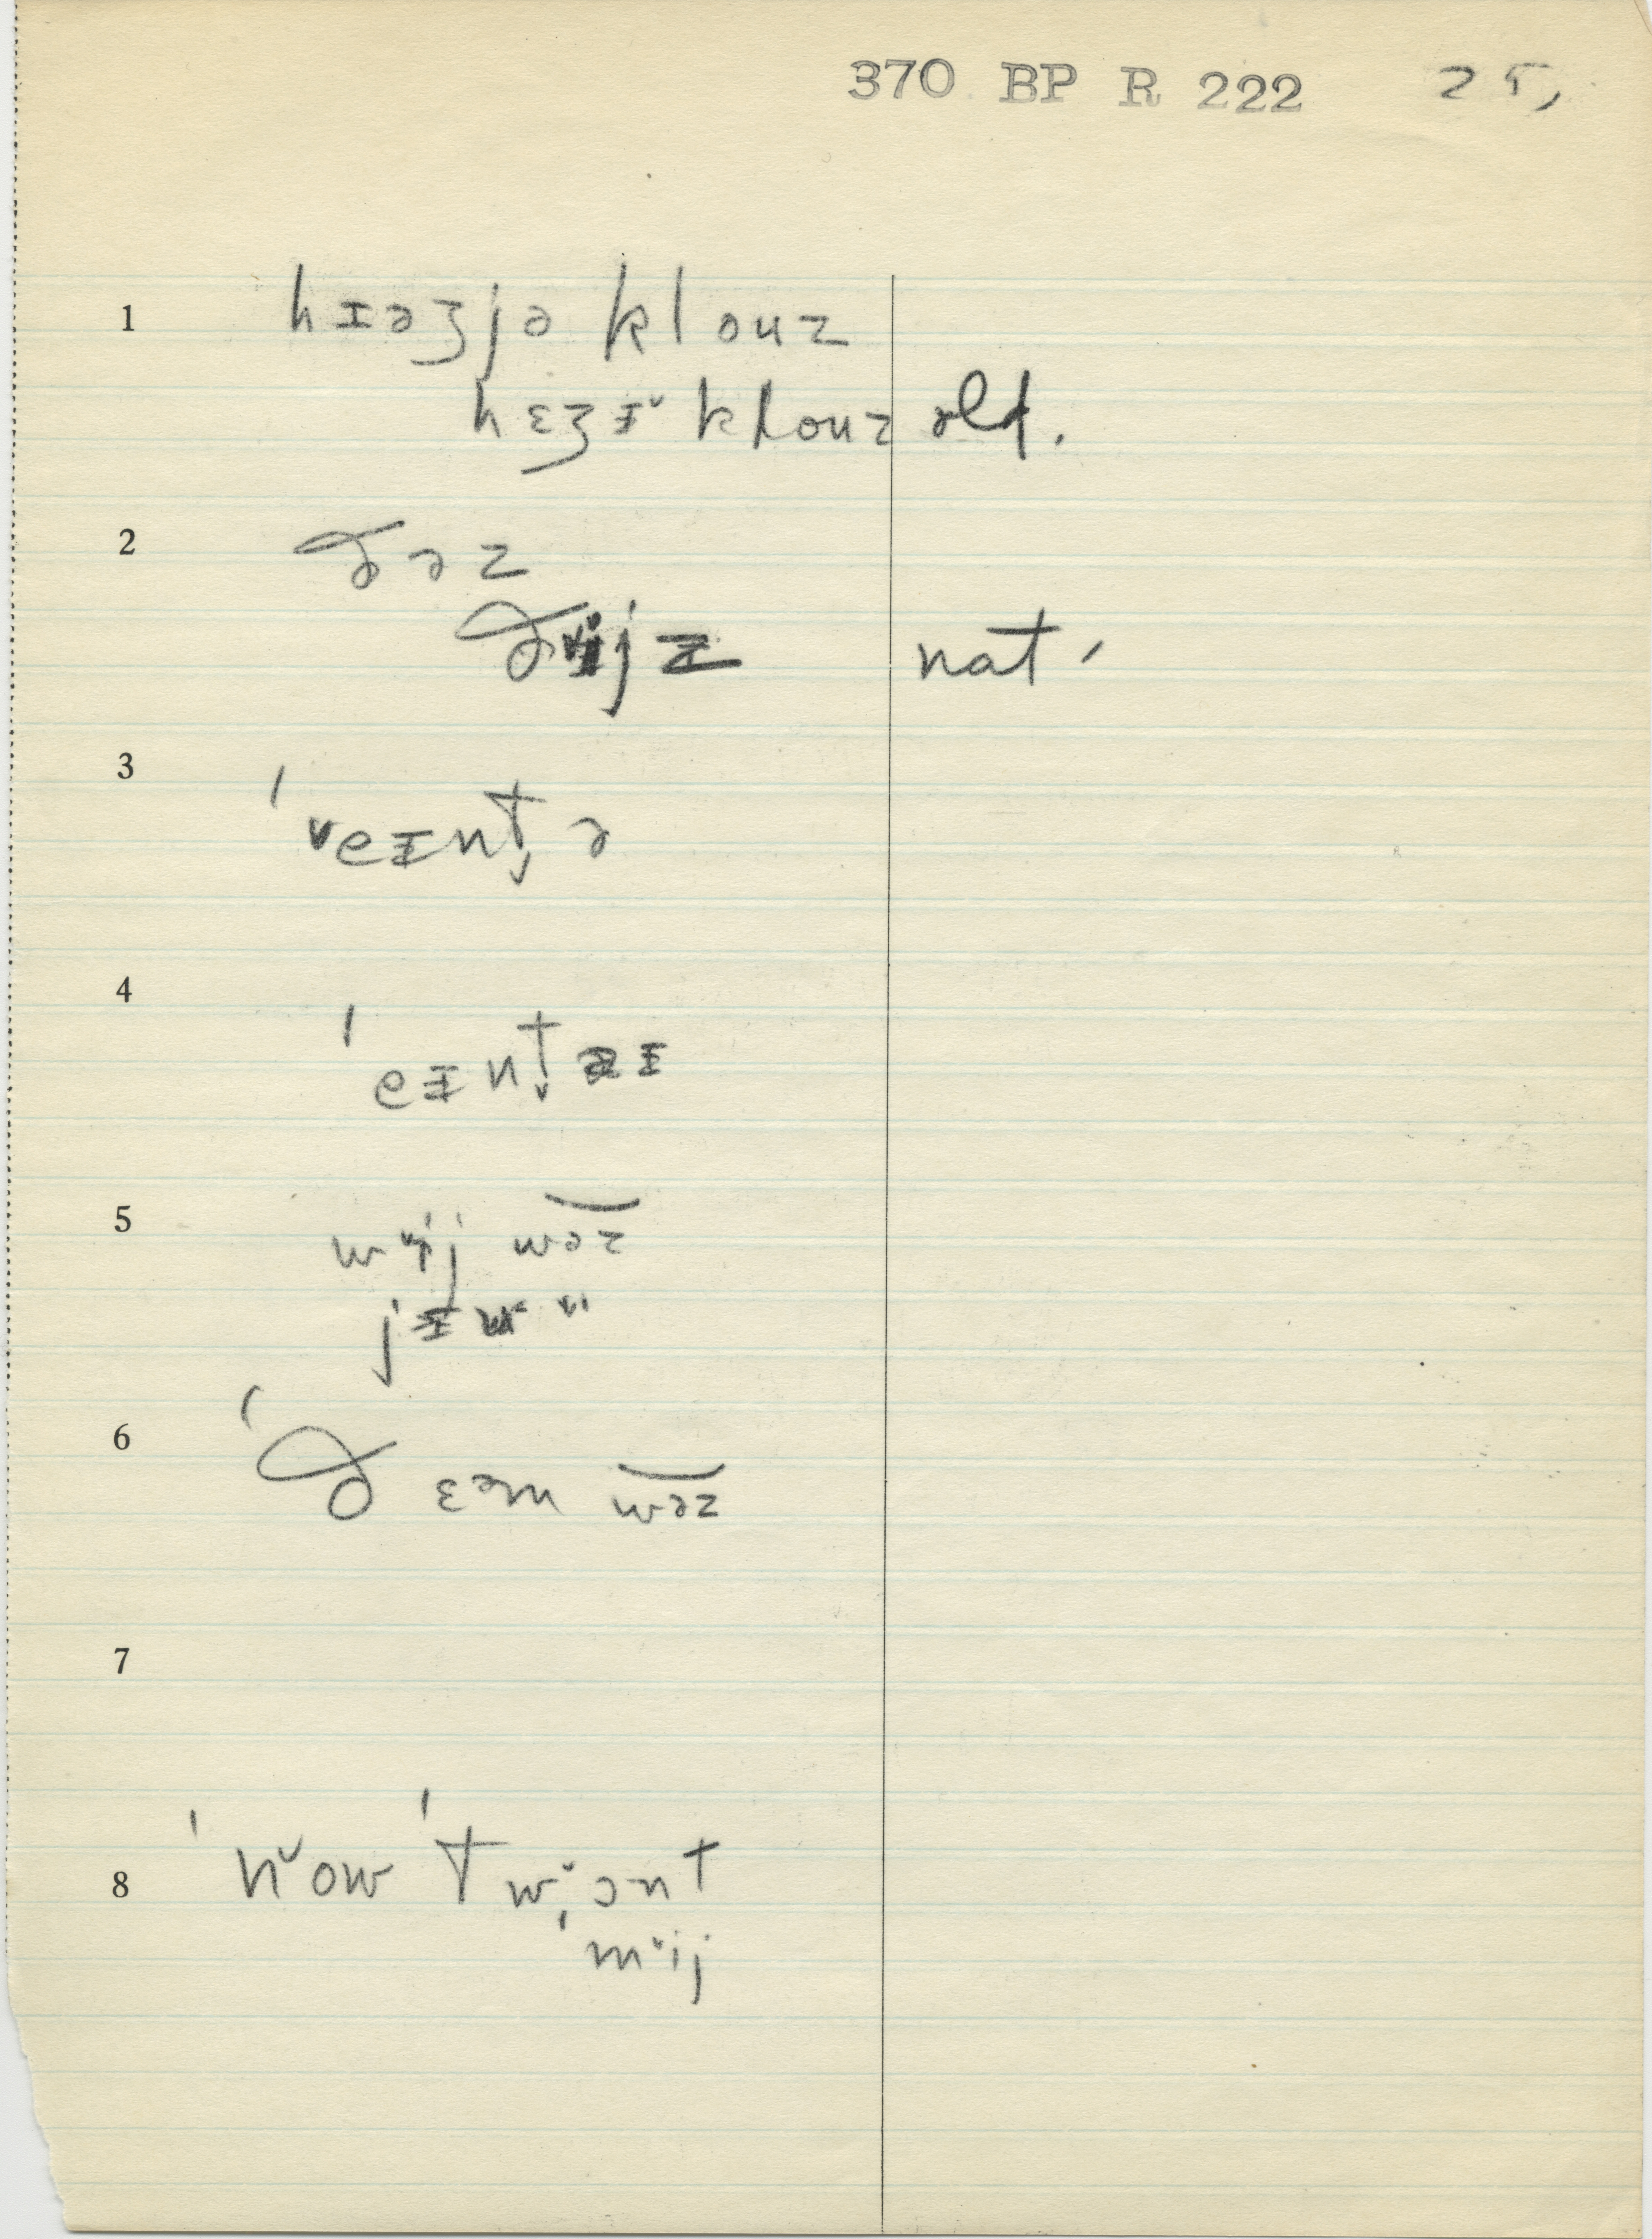 370 BP R 222 25,
1 hɪəʒjə klouz
hɛʒɪ̆ klouz old.
2 ðəz
ðɪ̆ijz nat.
3 ˈveɪnt̬ə
4 ˈeɪnt̬ɪ
5 wɪ̆ij wəz
6 ˈðɛəm wəz
7
8 ˈnᵛow ˈtwɔnt
ˈmᵛij